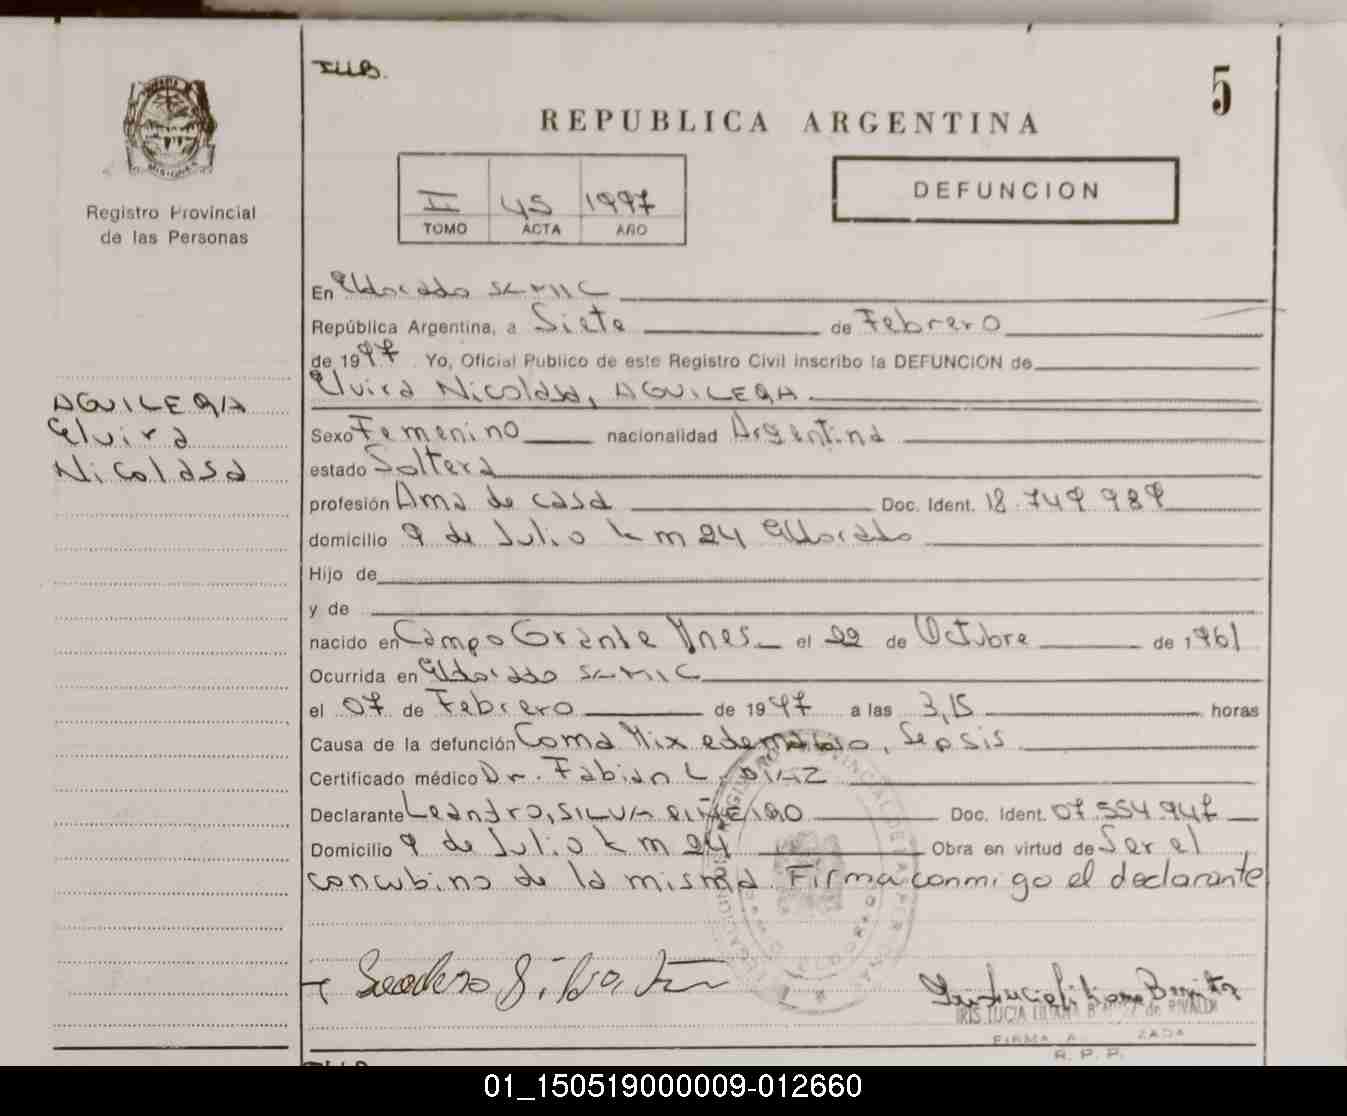 ILLB.
5
REPUBLICA ARGENTINA
MISIONES
Registro Provincial
de las Personas
II 45 1997
TOMO ACTA AÑO
DEFUNCION
En Eldorado
República Argentina, a Siete de Febrero
de 1997 Yo, Oficial Publico de este Registro Civil inscribo la DEFUNCION de
Elvira Nicolasa, AGUILERA
AGUILERA
Elvira
Nicolasa
Sexo Femenino nacionalidad Argentina
estado Soltera
profesión Ama de casa Doc. Ident. 18.749.989
domicilio 9 de Julio km 24 Eldorado
Hijo de
y de
nacido en Campo Grande Mnes. el 22 de Octubre de 1961
Ocurrida en Eldorado
el 07 de Febrero de 1997 a las 3,15 horas
Causa de la defunción Coma Mixedematoso, Sepsis
Certificado médico Dr. Fabian L. DIAZ
Declarante Leandro, SILVA Doc. Ident. 07.554.947
Domicilio 9 de Julio km 24 Obra en virtud de Ser el
concubino de la misma. Firma conmigo el declarante
IRIS LUCIA LILIANA de RIVALDI
FIRMA
R. P. P.
01_150519000009-012660